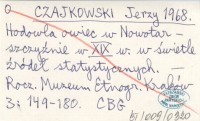 O CZAJKOWSKI Jerzy 1968.
Hodowla owiec w Nowotar-
szczyźnie w XIX w. w świetle
źródeł statystycznych.
Rocz. Muzeum Etnogr. Kraków
3: 149-180. CBG
BJ/009/0320